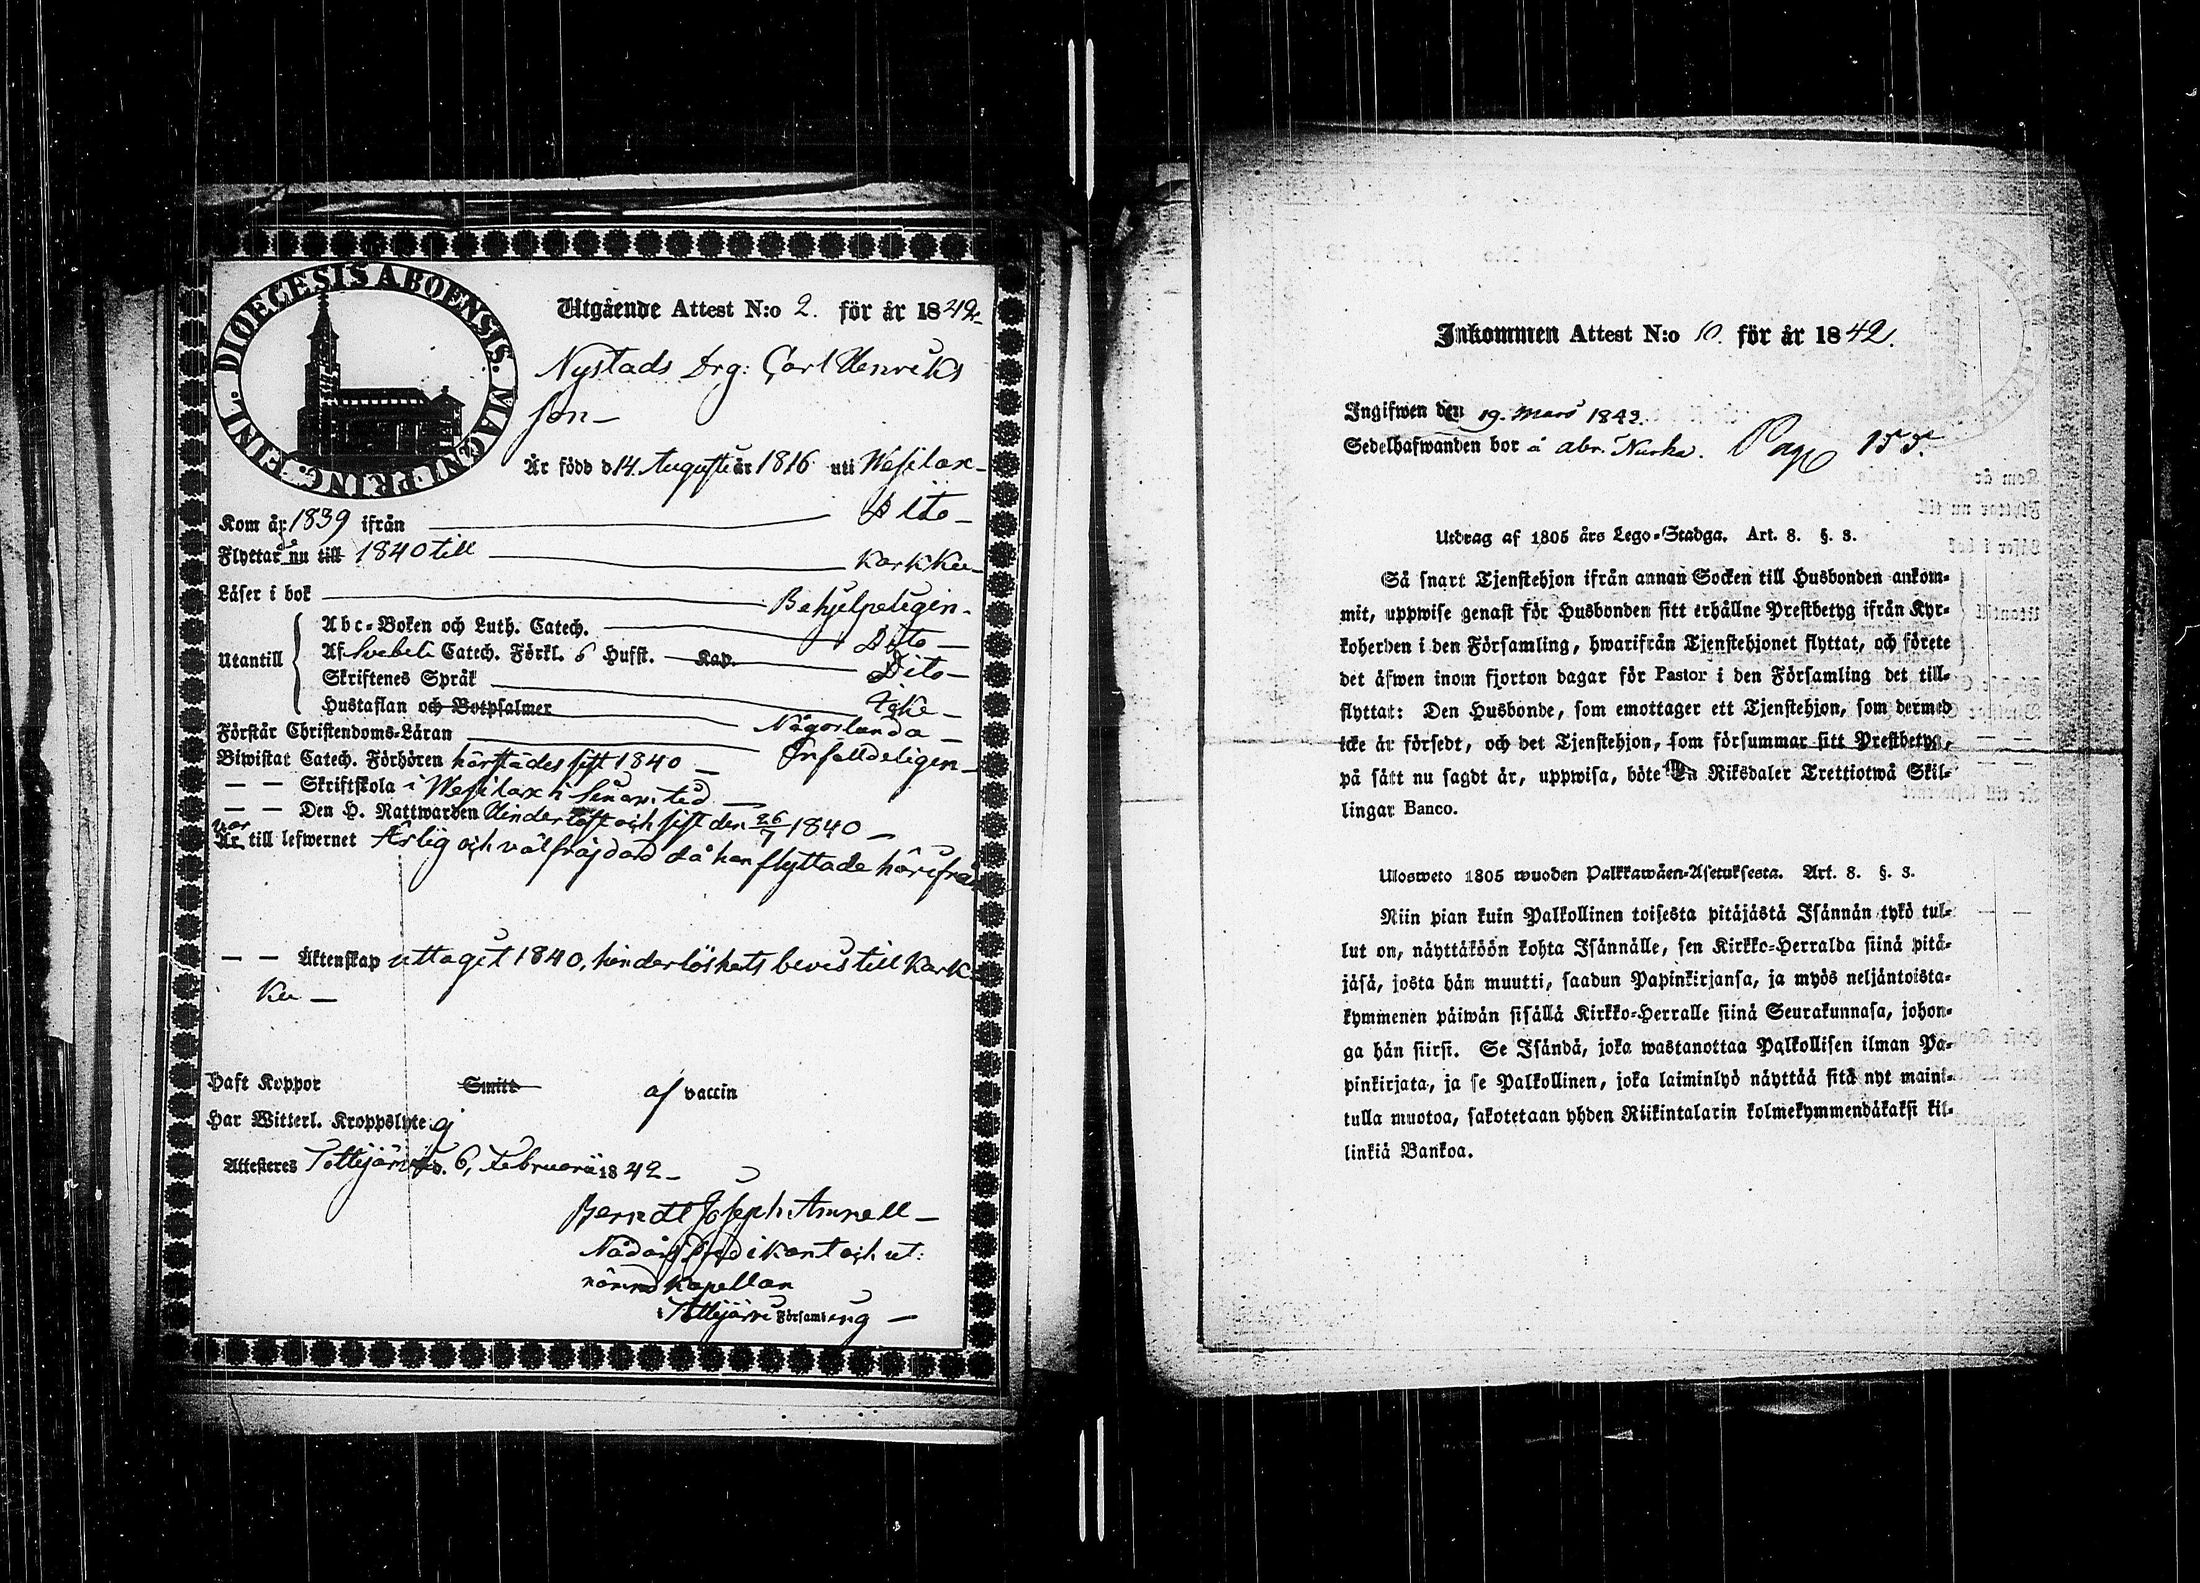 DIOECESIS ABOENSIS. MAGNI PRINC. FINL.
Utgående Attest N:o 2. för år 1842.
Nystads Drg: Carl Henriks
son—
Är född d 14. Augusti år 1816 uti Wesilax—
Kom år 1839 ifrån Dito—
Flyttar nu till 1840 till Karkku—
Läser i bok Behjelpeligen.
Utantill
Abc-Boken och Luth. Catech. Dito—
Af Svebeli Catech. Förkl. 6 Hufst. Kap. Dito—
Skriftenes Språk Icke—
Hustaflan och Botpsalmer Någorlunda—
Förstår Christendoms-Läran Enfalldeligen—
Biwistat Catech. Förhören härstädes sist 1840—
— — Skriftskola i Wesilax i sinom tid—
— — Den H. Nattwarden Hinderlöst och sist den 26/7 1840—
var
Är till lefwernet Ärlig och välfräjdad då han flyttade härifrån
— — Äktenskap uttagit 1840, hinderlöshets bevis till Kark-
ku—
Haft Koppor Smitt af vaccin
Har Witterl. Kroppslyte ej
Attesteras Tottijärvi d. 6, Februarii 1842—
Berndt Joseph Amnell—
Nådårs Predikant och ut:
nämnd Kapellan
i Tottijärvi Församling—
Inkommen Attest N:o 10. för år 1842.
Ingifwen den 19. Mars 1842.
Sedelhafwanden bor å abr. Nurka. Pag 155.
Utdrag af 1805 års Lego-Stadga. Art. 8. §. 3.
Så snart Tjenstehjon ifrån annan Socken till Husbonden ankom-
mit, uppwise genast för Husbonden sitt erhållne Prestbetyg ifrån Kyr-
koherden i den Församling, hwarifrån Tjenstehjonet flyttat, och förete
det äfwen inom fjorton dagar för Pastor i den Församling det till-
flyttat: Den Husbonde, som emottager ett Tjenstehjon, som dermed
icke är försedt, och det Tjenstehjon, som försummar sitt Prestbetyg,
på sätt nu sagdt är, uppwisa, böte En Riksdaler Trettiotwå Skil-
lingar Banco.
Ulosweto 1805 wuoden Palkkawäen-Asetuksesta. Art. 8. §. 3.
Niin pian kuin Palkollinen toisesta pitäjästä Isännän tykö tul-
lut on, näyttäköön kohta Isännälle, sen Kirkko-Herralda siinä pitä-
jäsä, josta hän muutti, saadun Papinkirjansa, ja myös neljäntoista-
kymmenen päiwän sisällä Kirkko-Herralle siinä Seurakunnasa, johon-
ga hän siirsi. Se Isändä, joka wastanottaa Palkollisen ilman Pa-
pinkirjata, ja se Palkollinen, joka laiminlyö näyttää sitä nyt maini-
tulla muotoa, sakotetaan yhden Riikintalarin kolmekymmendäkaksi kil-
linkiä Bankoa.